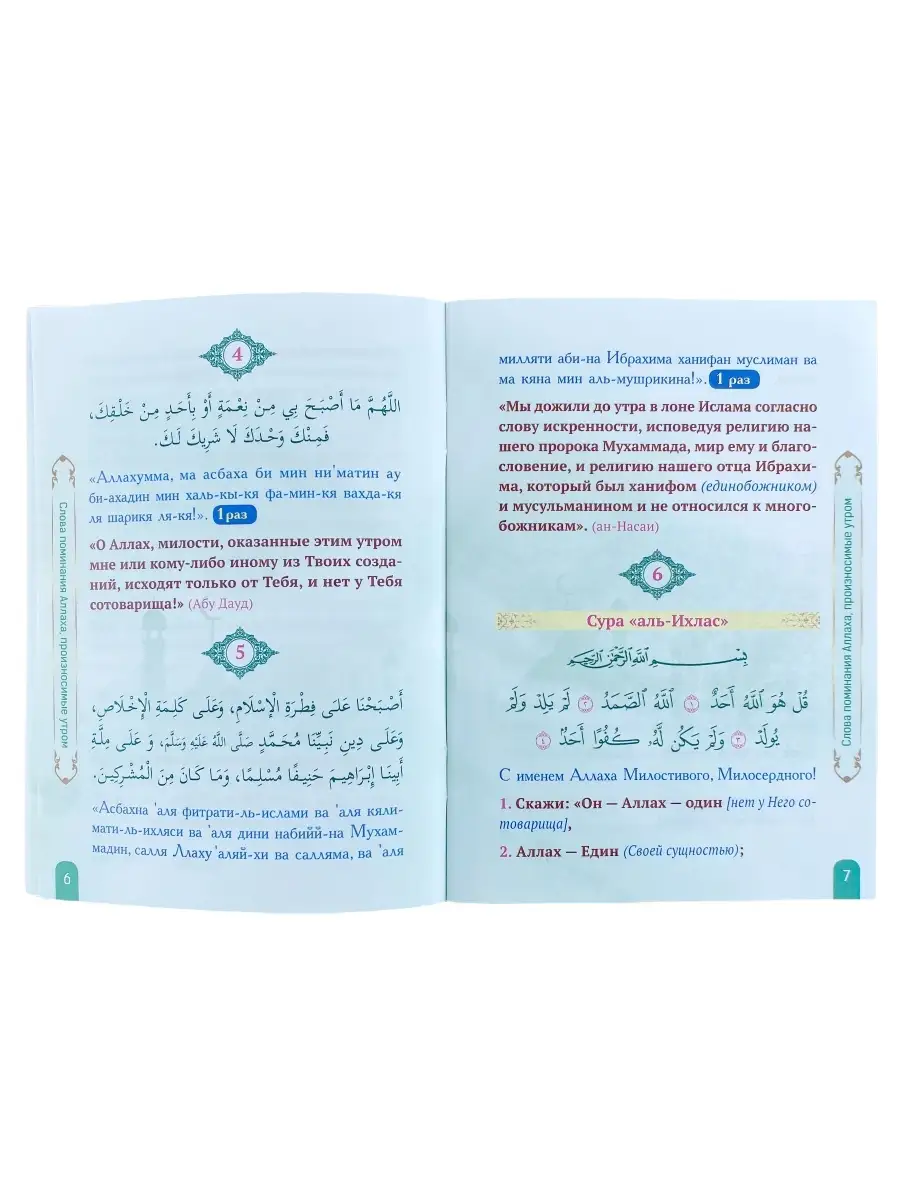 4
اللَّهُمَّ مَا أَصْبَحَ بِي مِنْ نِعْمَةٍ أَوْ بِأَحَدٍ مِنْ خَلْقِكَ،
فَمِنْكَ وَحْدَكَ لَا شَرِيكَ لَكَ.
«Аллахумма, ма асбаха би мин ни'матин ау
би-ахадин мин халь-кы-кя фа-мин-кя вахда-кя
ля шарикя ля-кя!». 1 раз
«О Аллах, милости, оказанные этим утром
мне или кому-либо иному из Твоих созда-
ний, исходят только от Тебя, и нет у Тебя
сотоварища!» (Абу Дауд)
5
أَصْبَحْنَا عَلَى فِطْرَةِ الْإِسْلَامِ، وَعَلَى كَلِمَةِ الْإِخْلَاصِ،
وَعَلَى دِينِ نَبِيِّنَا مُحَمَّدٍ صَلَّى اللهُ عَلَيْهِ وَسَلَّمَ، وَ عَلَى مِلَّةِ
أَبِينَا إِبْرَاهِيمَ حَنِيفًا مُسْلِمًا، وَمَا كَانَ مِنَ الْمُشْرِكِينَ.
«Асбахна 'аля фитрати-ль-ислами ва 'аля кяли-
мати-ль-ихляси ва 'аля дини набиййи-на Мухам-
мадин, салля Ллаху 'аляй-хи ва салляма, ва 'аля
Слова поминания Аллаха, произносимые утром
6
милляти аби-на Ибрахима ханифан муслиман ва
ма кяна мин аль-мушрикина!». 1 раз
«Мы дожили до утра в лоне Ислама согласно
слову искренности, исповедуя религию на-
шего пророка Мухаммада, мир ему и благо-
словение, и религию нашего отца Ибрахи-
ма, который был ханифом (единобожником)
и мусульманином и не относился к много-
божникам». (ан-Насаи)
6
Сура «аль-Ихлас»
بِسْمِ اللَّهِ الرَّحْمَٰنِ الرَّحِيمِ
قُلْ هُوَ اللَّهُ أَحَدٌ ١ اللَّهُ الصَّمَدُ ٢ لَمْ يَلِدْ وَلَمْ
يُولَدْ ٣ وَلَمْ يَكُن لَّهُ كُفُوًا أَحَدٌ ٤
С именем Аллаха Милостивого, Милосердного!
1. Скажи: «Он — Аллах — один [нет у Него со-
товарища],
2. Аллах — Един (Своей сущностью);
Слова поминания Аллаха, произносимые утром
7